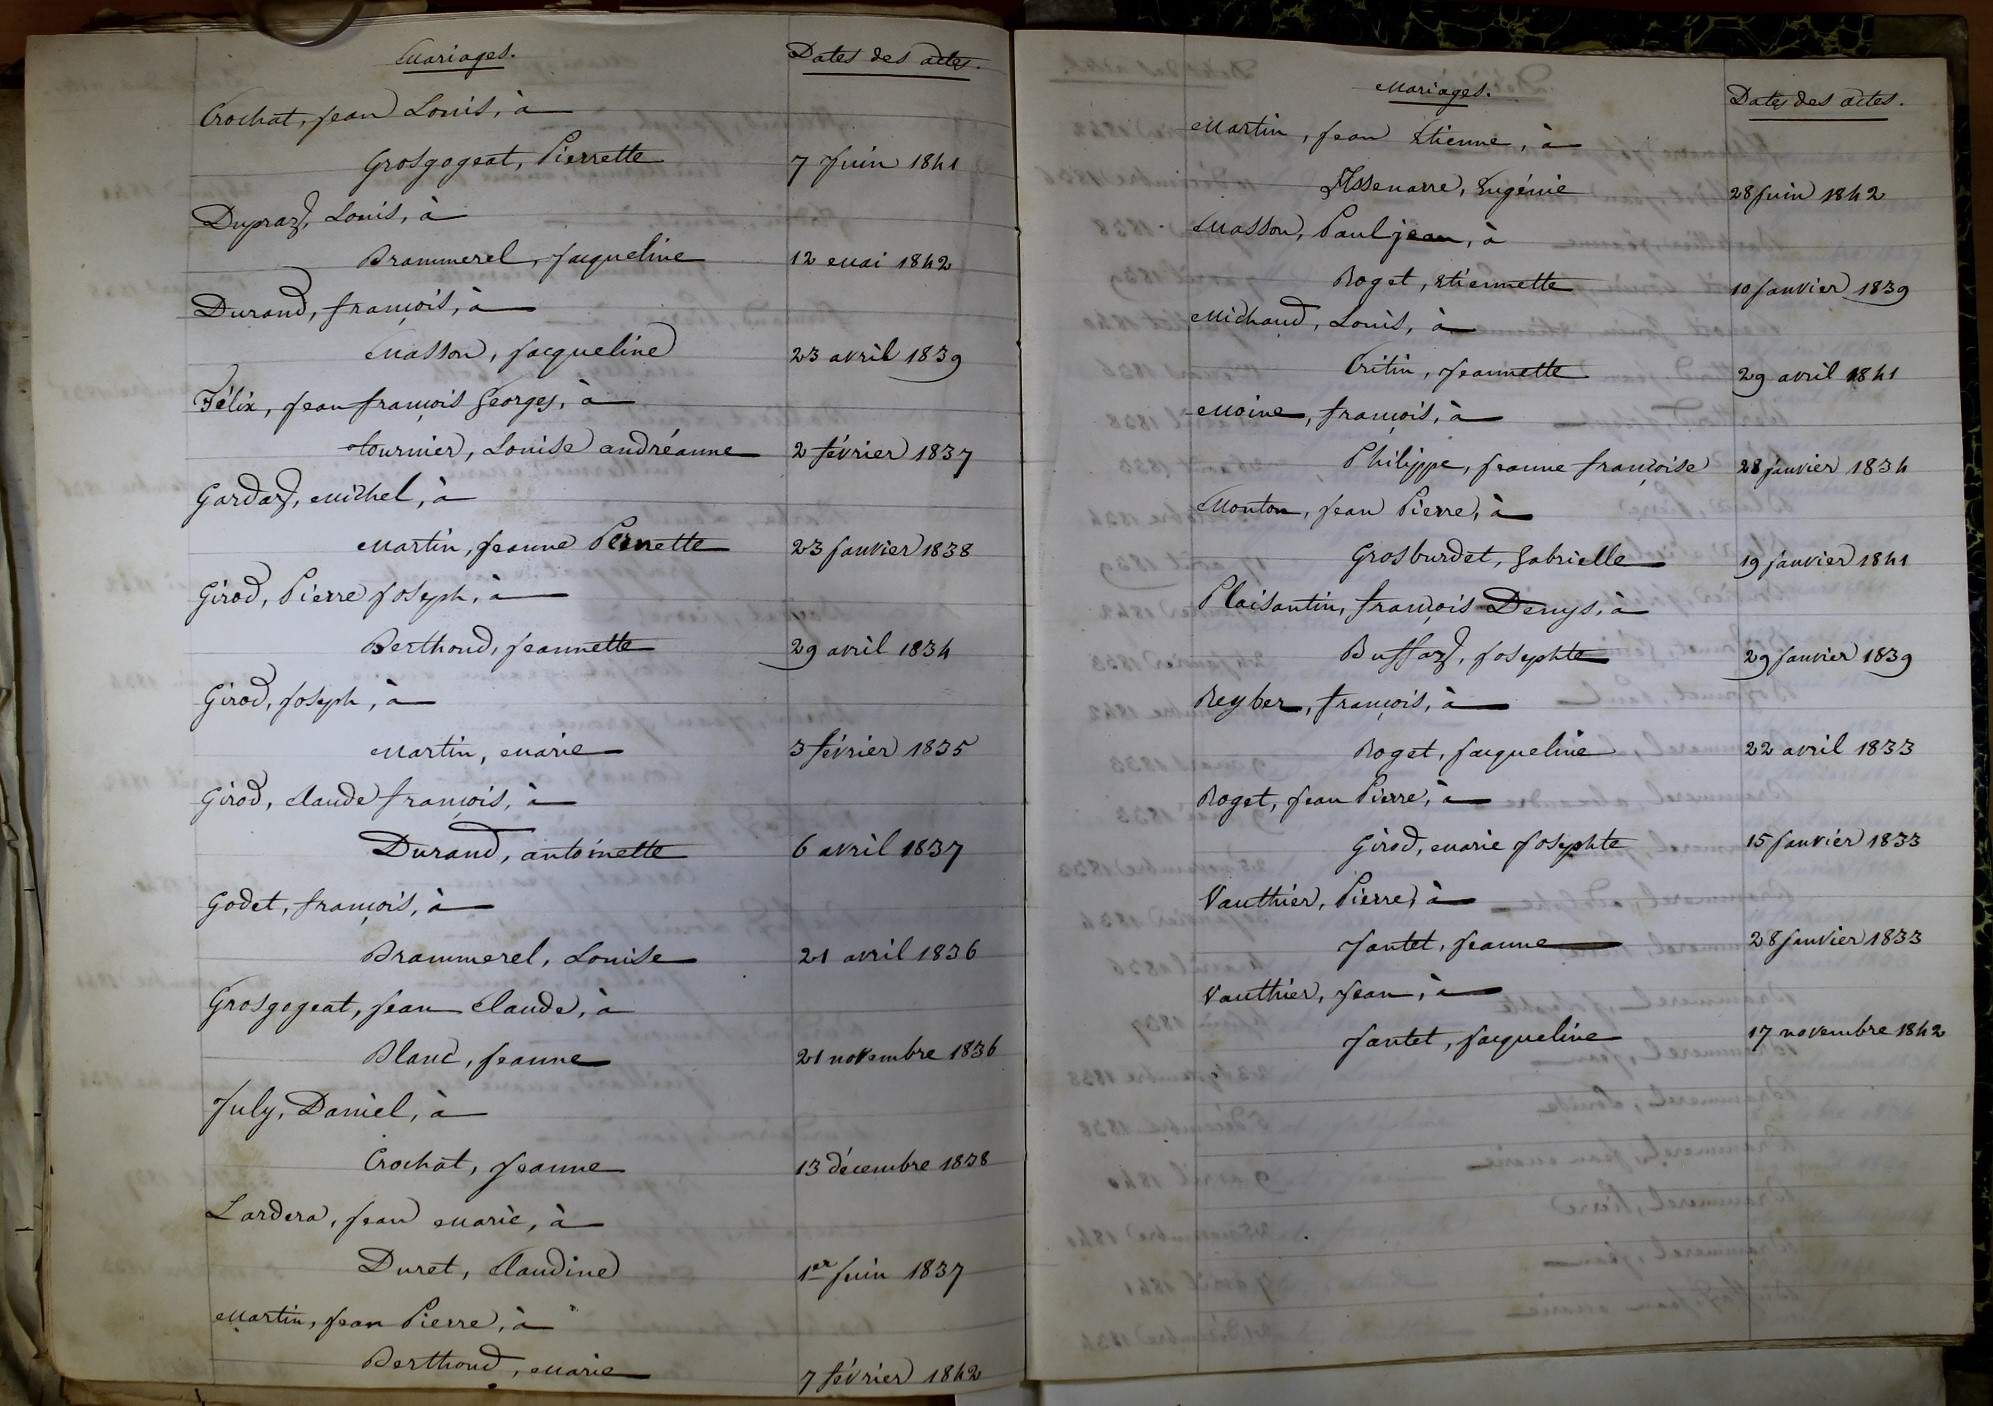 Mariages. Dates des actes.
Crochat, Jean Louis, à
Grosgogeat, Pierrette 7 Juin 1841
Dupraz, Louis, à
Brammerel, Jacqueline 12 Mai 1842
Durand, François, à
Masson, Jacqueline 23 avril 1839
Félix, Jean François Georges, à
Tournier, Louise andréanne 2 février 1837
Gardaz, Michel, à
Martin, Jeanne Pernette 23 Janvier 1838
Girod, Pierre Joseph, à
Berthoud, Jeannette 29 avril 1834
Girod, Joseph, à
Martin, Marie 3 février 1835
Girod, Claude François, à
Durand, antoinette 6 avril 1837
Godet, François, à
Brammerel, Louise 21 avril 1836
Grosgogeat, Jean Claude, à
Blanc, Jeanne 21 novembre 1836
July, Daniel, à
Crochat, Jeanne 13 décembre 1838
Lardera, Jean Marie, à
Duret, Claudine 1er Juin 1837
Martin, Jean Pierre, à
Berthoud, Marie 7 février 1842
Mariages. Dates des actes.
Martin, Jean Etienne, à
Assenarre, Eugénie 28 Juin 1842
Masson, Paul jean, à
Roget, Etiennette 10 Janvier 1839
Michaud, Louis, à
Critin, Jeannette 29 avril 1841
Moine, François, à
Philippe, Jeanne Françoise 28 janvier 1834
Monton, Jean Pierre, à
Grosburdet, Gabrielle 19 janvier 1841
Plaisantin, François Denys, à
Buffaz, Josephte 29 Janvier 1839
Reyber, François, à
Roget, Jacqueline 22 avril 1833
Roget, Jean Pierre, à
Girod, Marie Josephte 15 Janvier 1833
Vauthier, Pierre, à
Jantet, Jeanne 28 Janvier 1833
Vauthier, Jean, à
Jantet, Jacqueline 17 novembre 1842